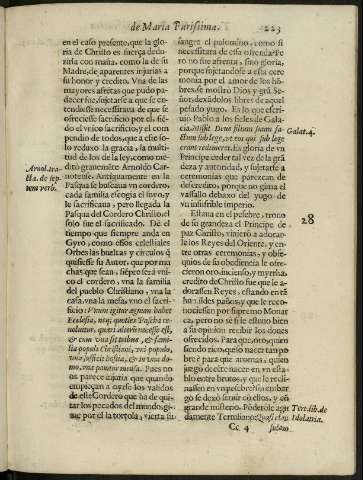 de Maria Purissima.
223
en el caso presente, que la glo-
ria de Christo es fuerça dedu-
zirla con maña, como la de su
Madre, de aparentes injurias a
su honor y credito. Vna de las
mayores afretas que pudo pa-
decer fue, sujetarse a que se en-
tendiesse necessitaua de que se
ofreciesse sacrificio por el, siẽ-
do el vnico sacrificio, y el com
pendio de todos, que a este so-
lo reduxo la gracia, la multi-
tud de los de la ley, como me-
ditó grauemẽte Arnoldo Car-
notense. Antiguamente en la
Pasqua se buscaua vn cordero,
cada familia escogia el suyo, y
le sacrificaua, pero llegada la
Pasqua del Cordero Christo, el
solo fue el sacrificado. Dè el
tiempo que siempre anda en
Gyro, como essos celestiales
Orbes las bueltas y circulos q̃
quisiesse su Autor, que por mu
chas que sean, siẽpre serà vni-
co el cordero, vna la familia
del pueblo Christiano, vna la
casa, vna la mesa, vno el sacri-
ficio: Vnum igitur agnum habet
Ecclesia, neq; quoties Pascha re-
uoluitur, queri alter necesse est,
& cum vna sit tribus, & fami-
lia populi Christiani, vni populo,
vna sufficit hostia, & in vna do-
mo, vna ponitur mensa. Pues no
parece injuria que quando
empieçan a oyrse los validos
de este Cordero que ha de qui-
tar los pecados del mundo, gi-
me por el la tortola, vierta su
sangre el palomino, como si
necessitara de essa ofrenda. Pe
ro no fue afrenta, sino gloria,
porque sujetandose a esta cere
monia por el amor de los hõ-
bres, se mostro Dios y grã Se-
ñor, dexandolos libres de aquel
pesado yugo. Es lo que escri-
uio Pablo a los fieles de Gala-
cia. Misit Deus filium suum fa-
ctum sub lege, vt eos qui sub lege
erant redimeret. Es gloria de vn
Principe ceder tal vez de la grã
deza y autoridad, y sujetarse a
ceremonias que parezcan de
descredito, porque no gima el
vassallo debaxo del yugo de
vn insufrible imperio.
Estaua en el pesebre, trono
de su grandeza el Principe de
paz Christo, vinierõ a adorar-
le los Reyes del Oriente, y en-
tre otras ceremonias, y obse-
quios de su obediencia le ofre-
cieron oro, incienso, y myrrha,
credito de Christo fue que le a-
dorassen Reyes, estando en tã
humildes pañales, y que le reco-
nociessen por supremo Monar
ca, pero no sè si le estuuo bien
a su opinion recibir los dones
ofrecidos. Para que, oro, quien
siendo rico, quiso nacer tan po
bre? para que aromas, quien
juzgò decente nacer en vn esta-
blo entre brutos, y que le reci-
niessen en vn pesebre sin embar
go se dexò seruir cõ ellos, y cõ
grande misterio. Pōderòle agu-
damente Tertuliano: Quasi etiam
Cc 4
Iudæo-
Arnol. tra-
ct. de sep-
tem verb.
Galat. 4.
28
Tert. lib. de
Idolatria.